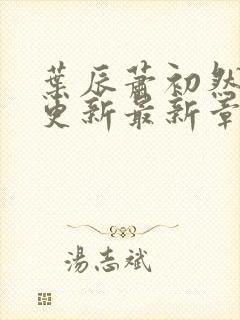 葉辰蕭初然
更新最新章
湯志斌